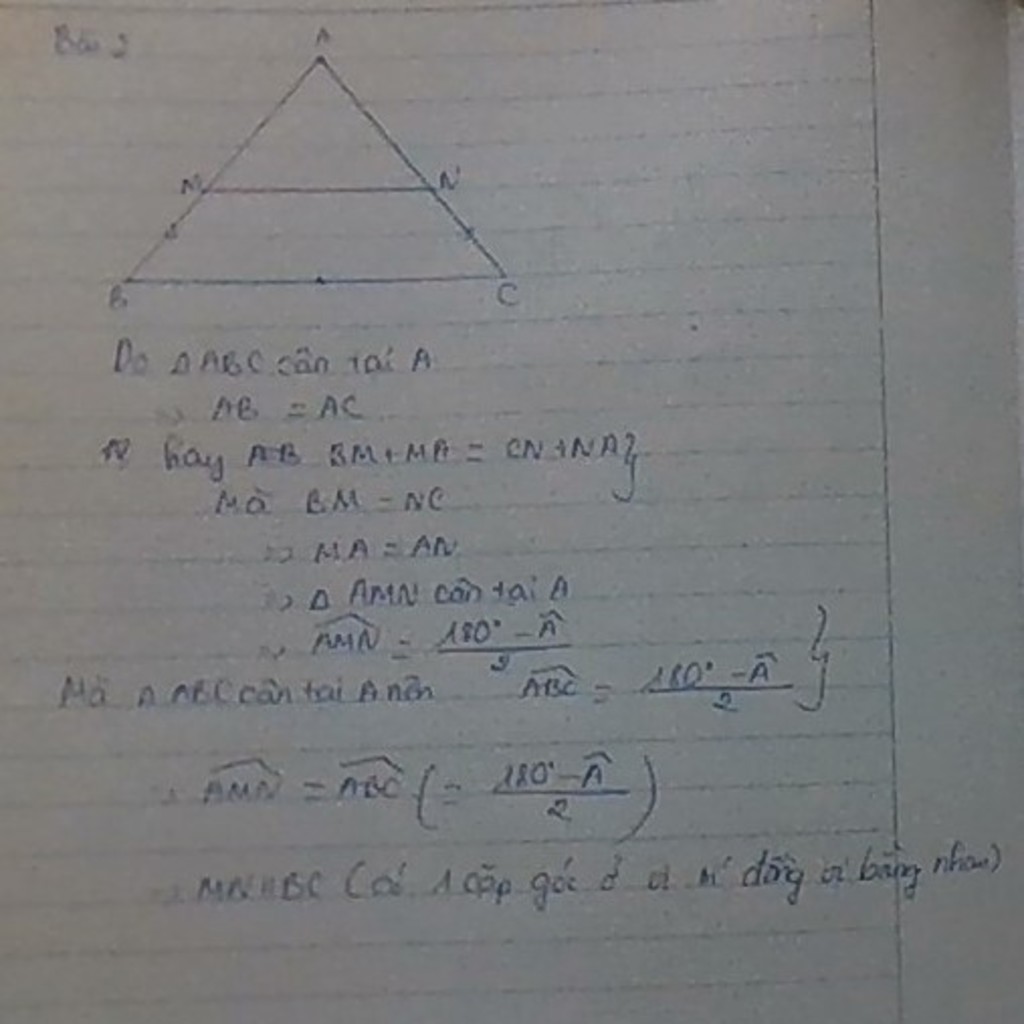 Bài 2
A
M N
B C
Do Δ ABC cân tại A
=> AB = AC
hay AB BM + MA = CN + NA }
Mà BM = NC
=> MA = AN
=> Δ AMN cân tại A
=> \widehat{AMN} = \frac{180° - \widehat{A}}{2}
Mà Δ ABC cân tại A nên \widehat{ABC} = \frac{180° - \widehat{A}}{2} }
=> \widehat{AMN} = \widehat{ABC} ( = \frac{180° - \widehat{A}}{2} )
=> MN // BC (có 1 cặp góc ở vị trí đồng vị bằng nhau)